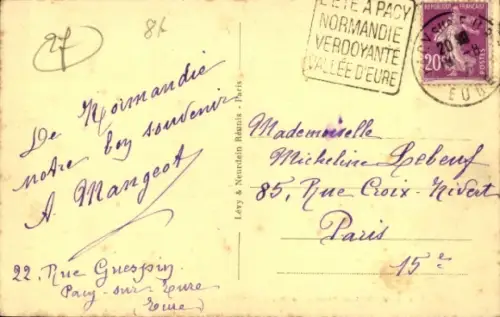 27
86
L'ÉTÉ A PACY
NORMANDIE
VERDOYANTE
VALLÉE D'EURE
20
POSTES
EURE
De Normandie
notre bon souvenir
A. Mangeot
22, Rue Guespin
Pacy-sur-Eure
(Eure)
Lévy & Neurdein Réunis • Paris
Mademoiselle
Micheline Lebeuf
85, Rue Croix-Nivert
Paris
15e